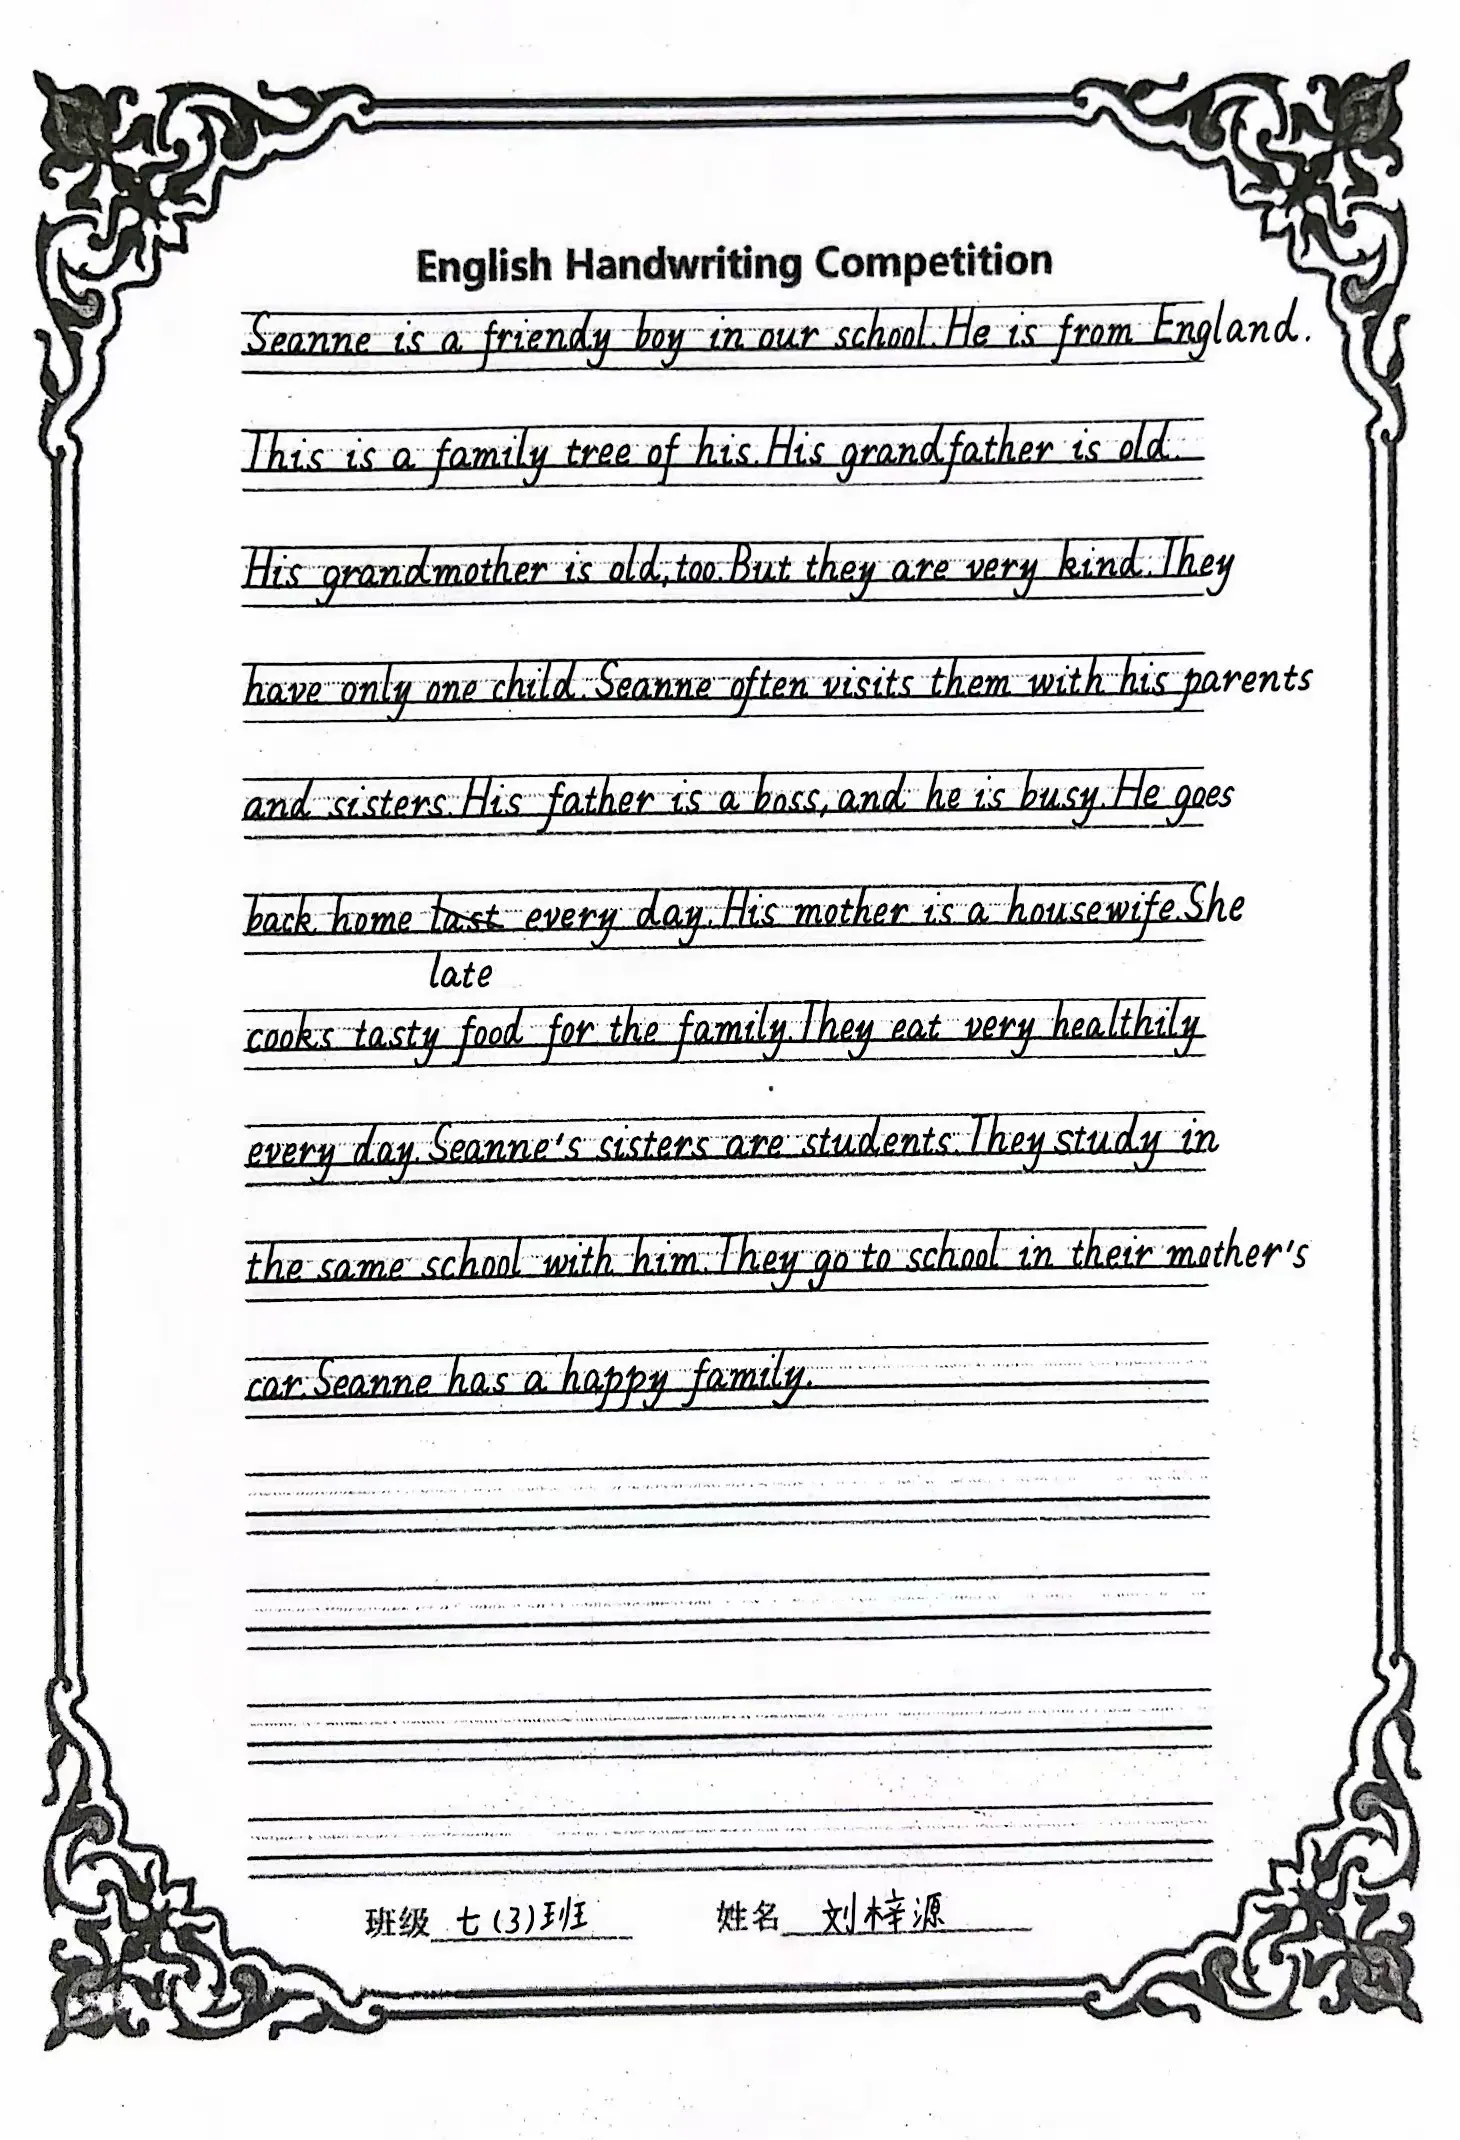 English Handwriting Competition
Seanne is a friendy boy in our school. He is from England.
This is a family tree of his. His grandfather is old.
His grandmother is old, too. But they are very kind. They
have only one child. Seanne often visits them with his parents
and sisters. His father is a boss, and he is busy. He goes
back home last every day. His mother is a housewife. She
late
cooks tasty food for the family. They eat very healthily
every day. Seanne's sisters are students. They study in
the same school with him. They go to school in their mother's
car. Seanne has a happy family.
班级 七(3)班 姓名 刘梓源